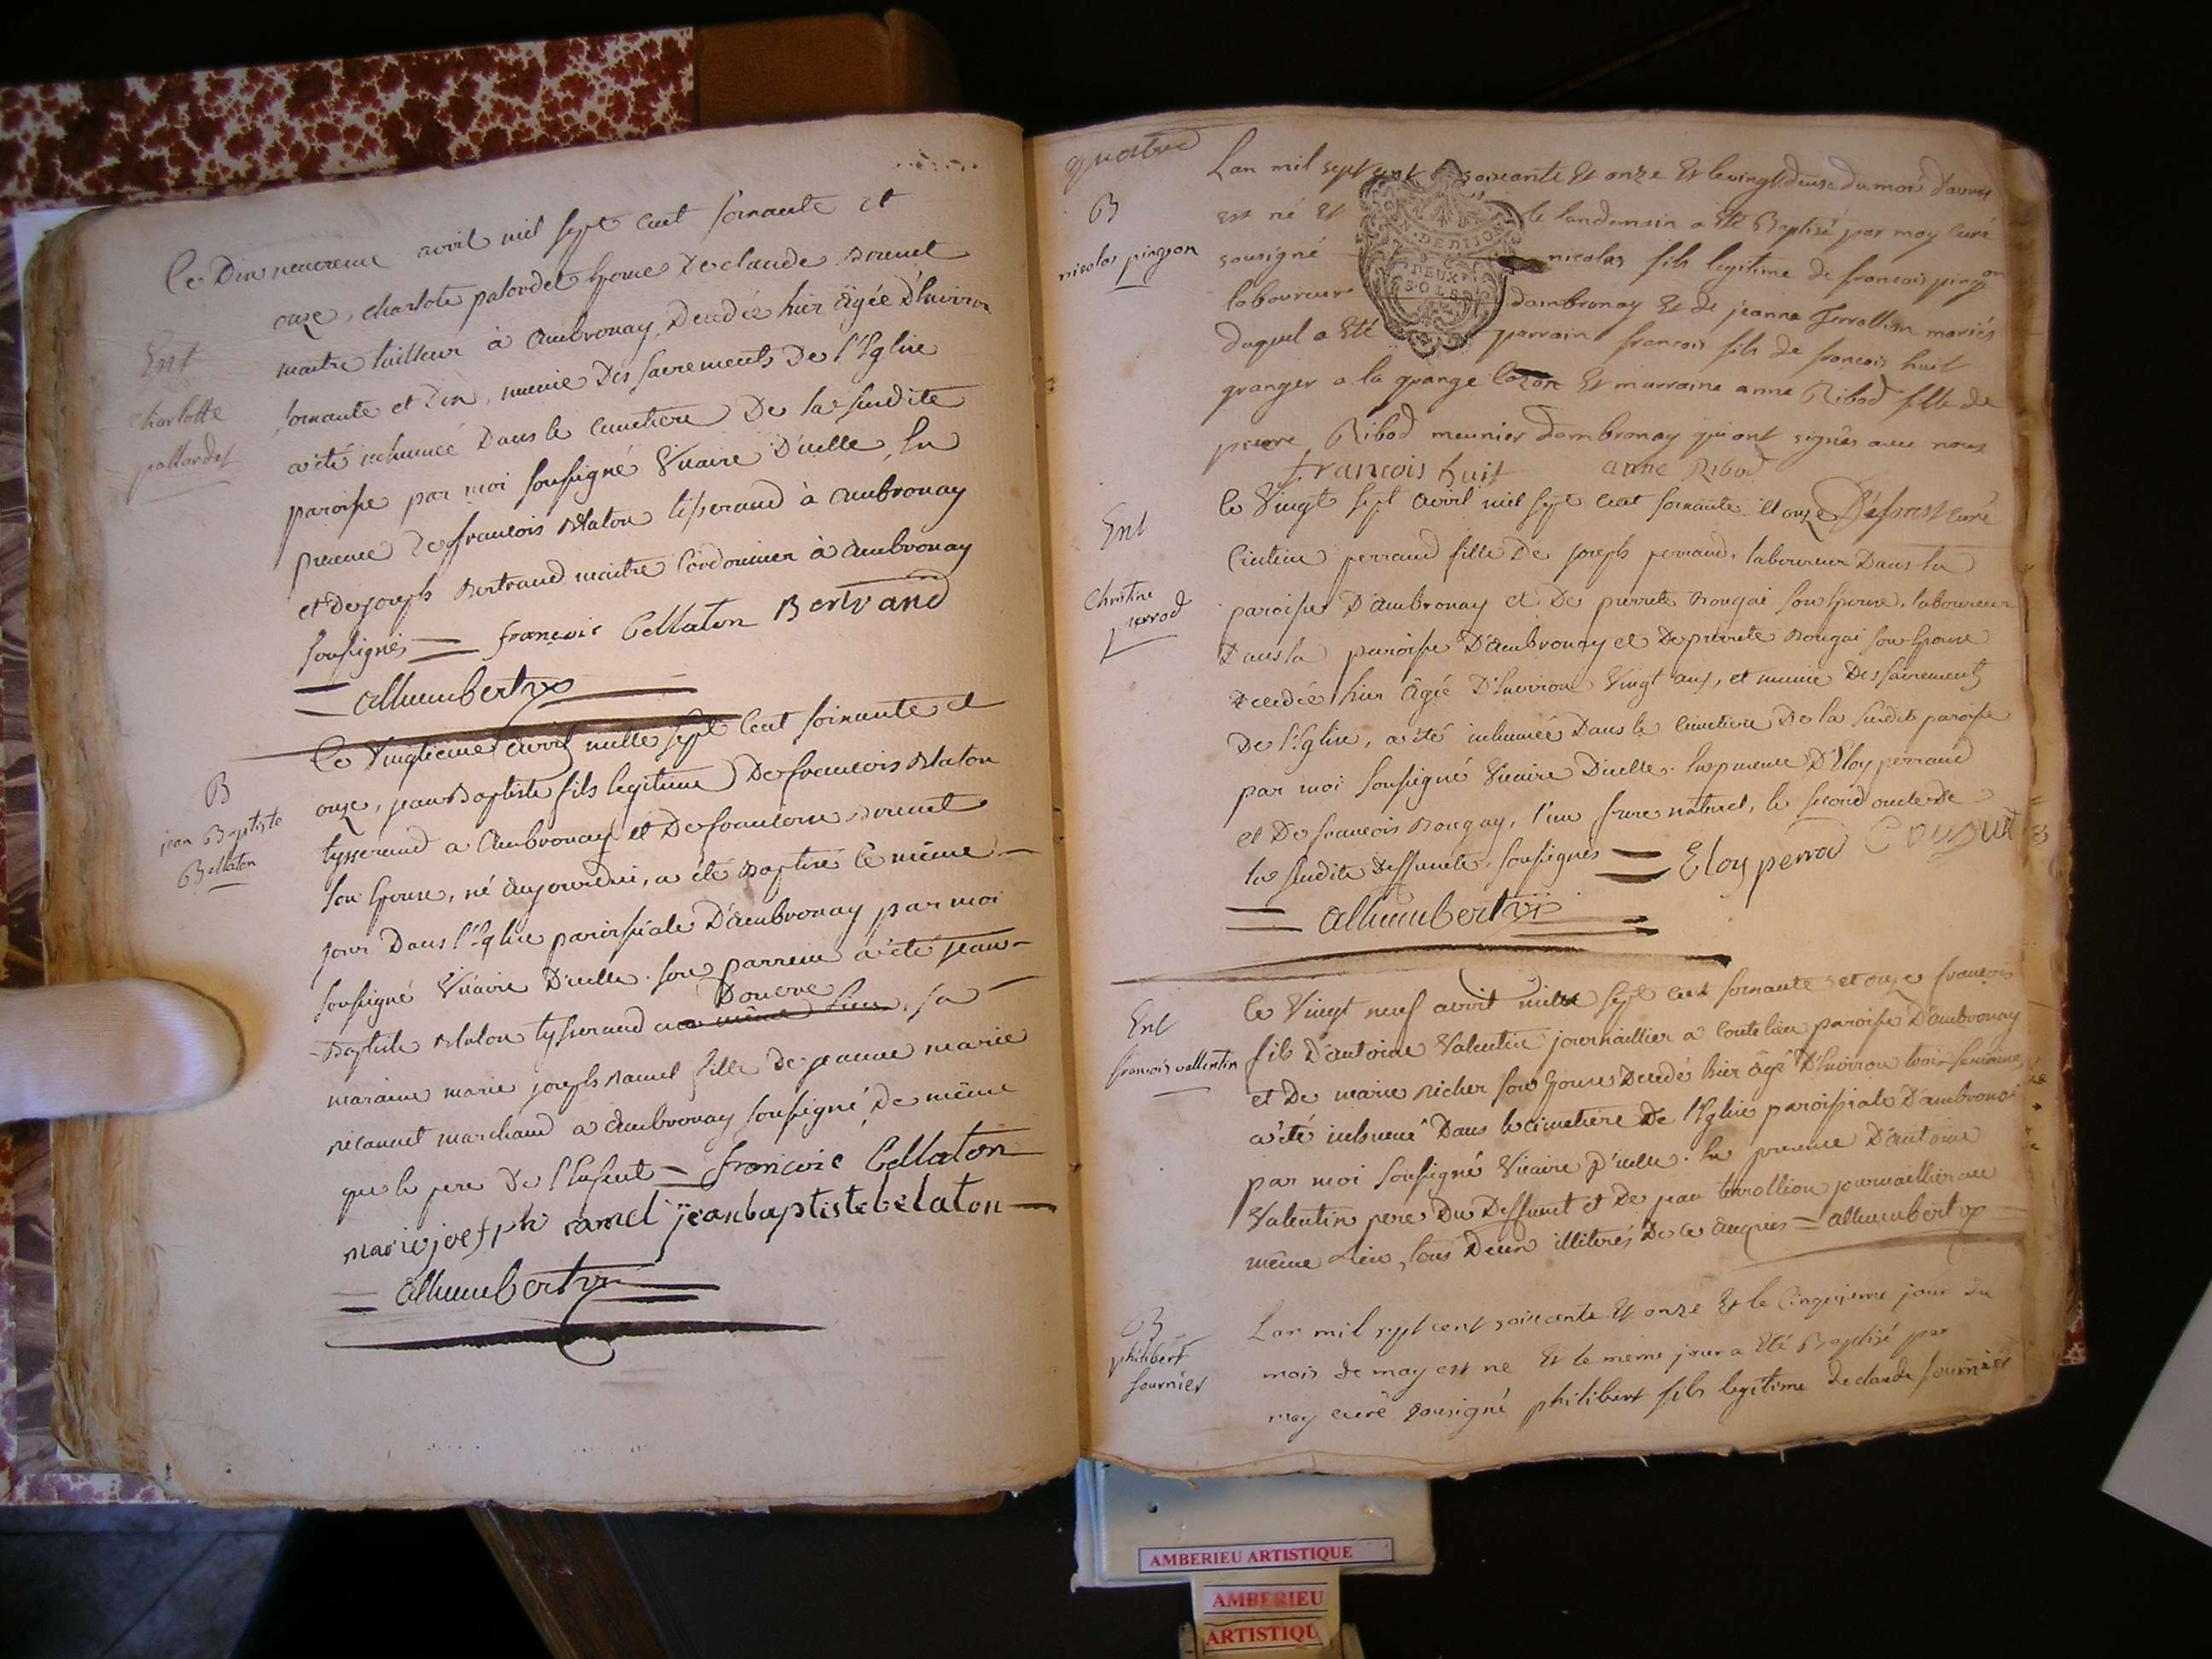 Le Dix neuvieme avril mil sept cent soixante et
onze, charlote palordet Epouse De claude
maitre tailleur à Ambronay, Decedée hier âgée D'Environ
soixante et Dix, munie Des sacrements De l'Eglise
a été inhumée Dans le cimetiere De la susdite
paroisse par moi soussigné Vicaire D'icelle, En
presence De francois Blaton tisserand à ambronay
et De joseph Bertrand maitre Cordonnier à Ambronay
soussignés francois bellaton Bertrand
allhumbert vic
Ent
charlotte
pallardet
Le Vingtieme avril mille sept cent soixante et
onze, jean Baptiste fils legitime De francois Blaton
tysserand a Ambronay et De francoise
son Epouse, né aujourdui, a été Baptisé le même
jour Dans l'Eglise paroissiale D'ambronay par moi
soussigné Vicaire D'icelle. son parrein a été jean
Baptiste Blaton tysserand a Douvre, sa
maraine marie joseph Ramel fille de jeanne marie
marchand a Ambronay soussigné De même
que le pere De l'Enfent francois bellaton
marie josesph ramel jeanbaptiste belaton
allhumbert vic
B
jean Baptiste
Bellaton
quatre
Lan mil sept cent soixante Et onze Et le vingt deuse du mois davril
est né Et le landemain a Eté Baptisé par moy curé
sousigné nicolas fils legitime de francois pingon
laboureur dambronay Et de jeanne Terrollion mariés
duquel a Eté parrain francois fils de francois huit
granger a la grange Et marraine anne Ribod fille de
pierre Ribod meunier dambronay qui ont signés avec nous
francois huit anne Ribod
Déforest curé
B
nicolas pingon
N. DE DIJON
DEUX
SOLS
Le Vingt sept avril mil sept cent soixante et onze
Cristine perraud fille De joseph perraud, laboureur Dans la
paroisse D'ambronay et De pierrette Bougai son Epouse, laboureur
Dans la paroisse D'ambronay et De pierrete Bougai son Epouse
Decedée hier âgée D'Environ Vingt ans, et munie Des sacrements
De l'Eglise, a été inhumée Dans le cimetiere De la susdite paroisse
par moi soussigné Vicaire D'icelle. En presence D'Eloy perraud
et De francois Bougay, l'un frere naturel, le second oncle De
la susdite Deffuncte, soussignés Eloy perrod
allhumbert vic
Ent
Christine
perrod
Le Vingt neuf avril mille sept cent soixante et onze francois
fils D'antoine Valentin journaillier a Coutelieu paroisse D'ambronay
et De marie Richer son Epouse Decedé hier âgé D'Environ trois semaines
a été inhumé Dans le cimetiere De l'Eglise paroissiale D'ambronai
par moi soussigné Vicaire D'icelle. En presence D'antoine
Valentin pere Du Deffunct et De jean terrollion journaillier au
même Lieu, tous Deux illiterés De ce Enquis allhumbert vic
Ent
francois vallentin
Lan mil sept cent soixante Et onze Et le Cinquieme jour du
mois de may est né Et le meme jour a Eté Baptisé par
moy curé sousigné philibert fils legitime de claude fournier
B
philibert
fournier
AMBERIEU ARTISTIQUE
AMBERIEU
ARTISTIQU